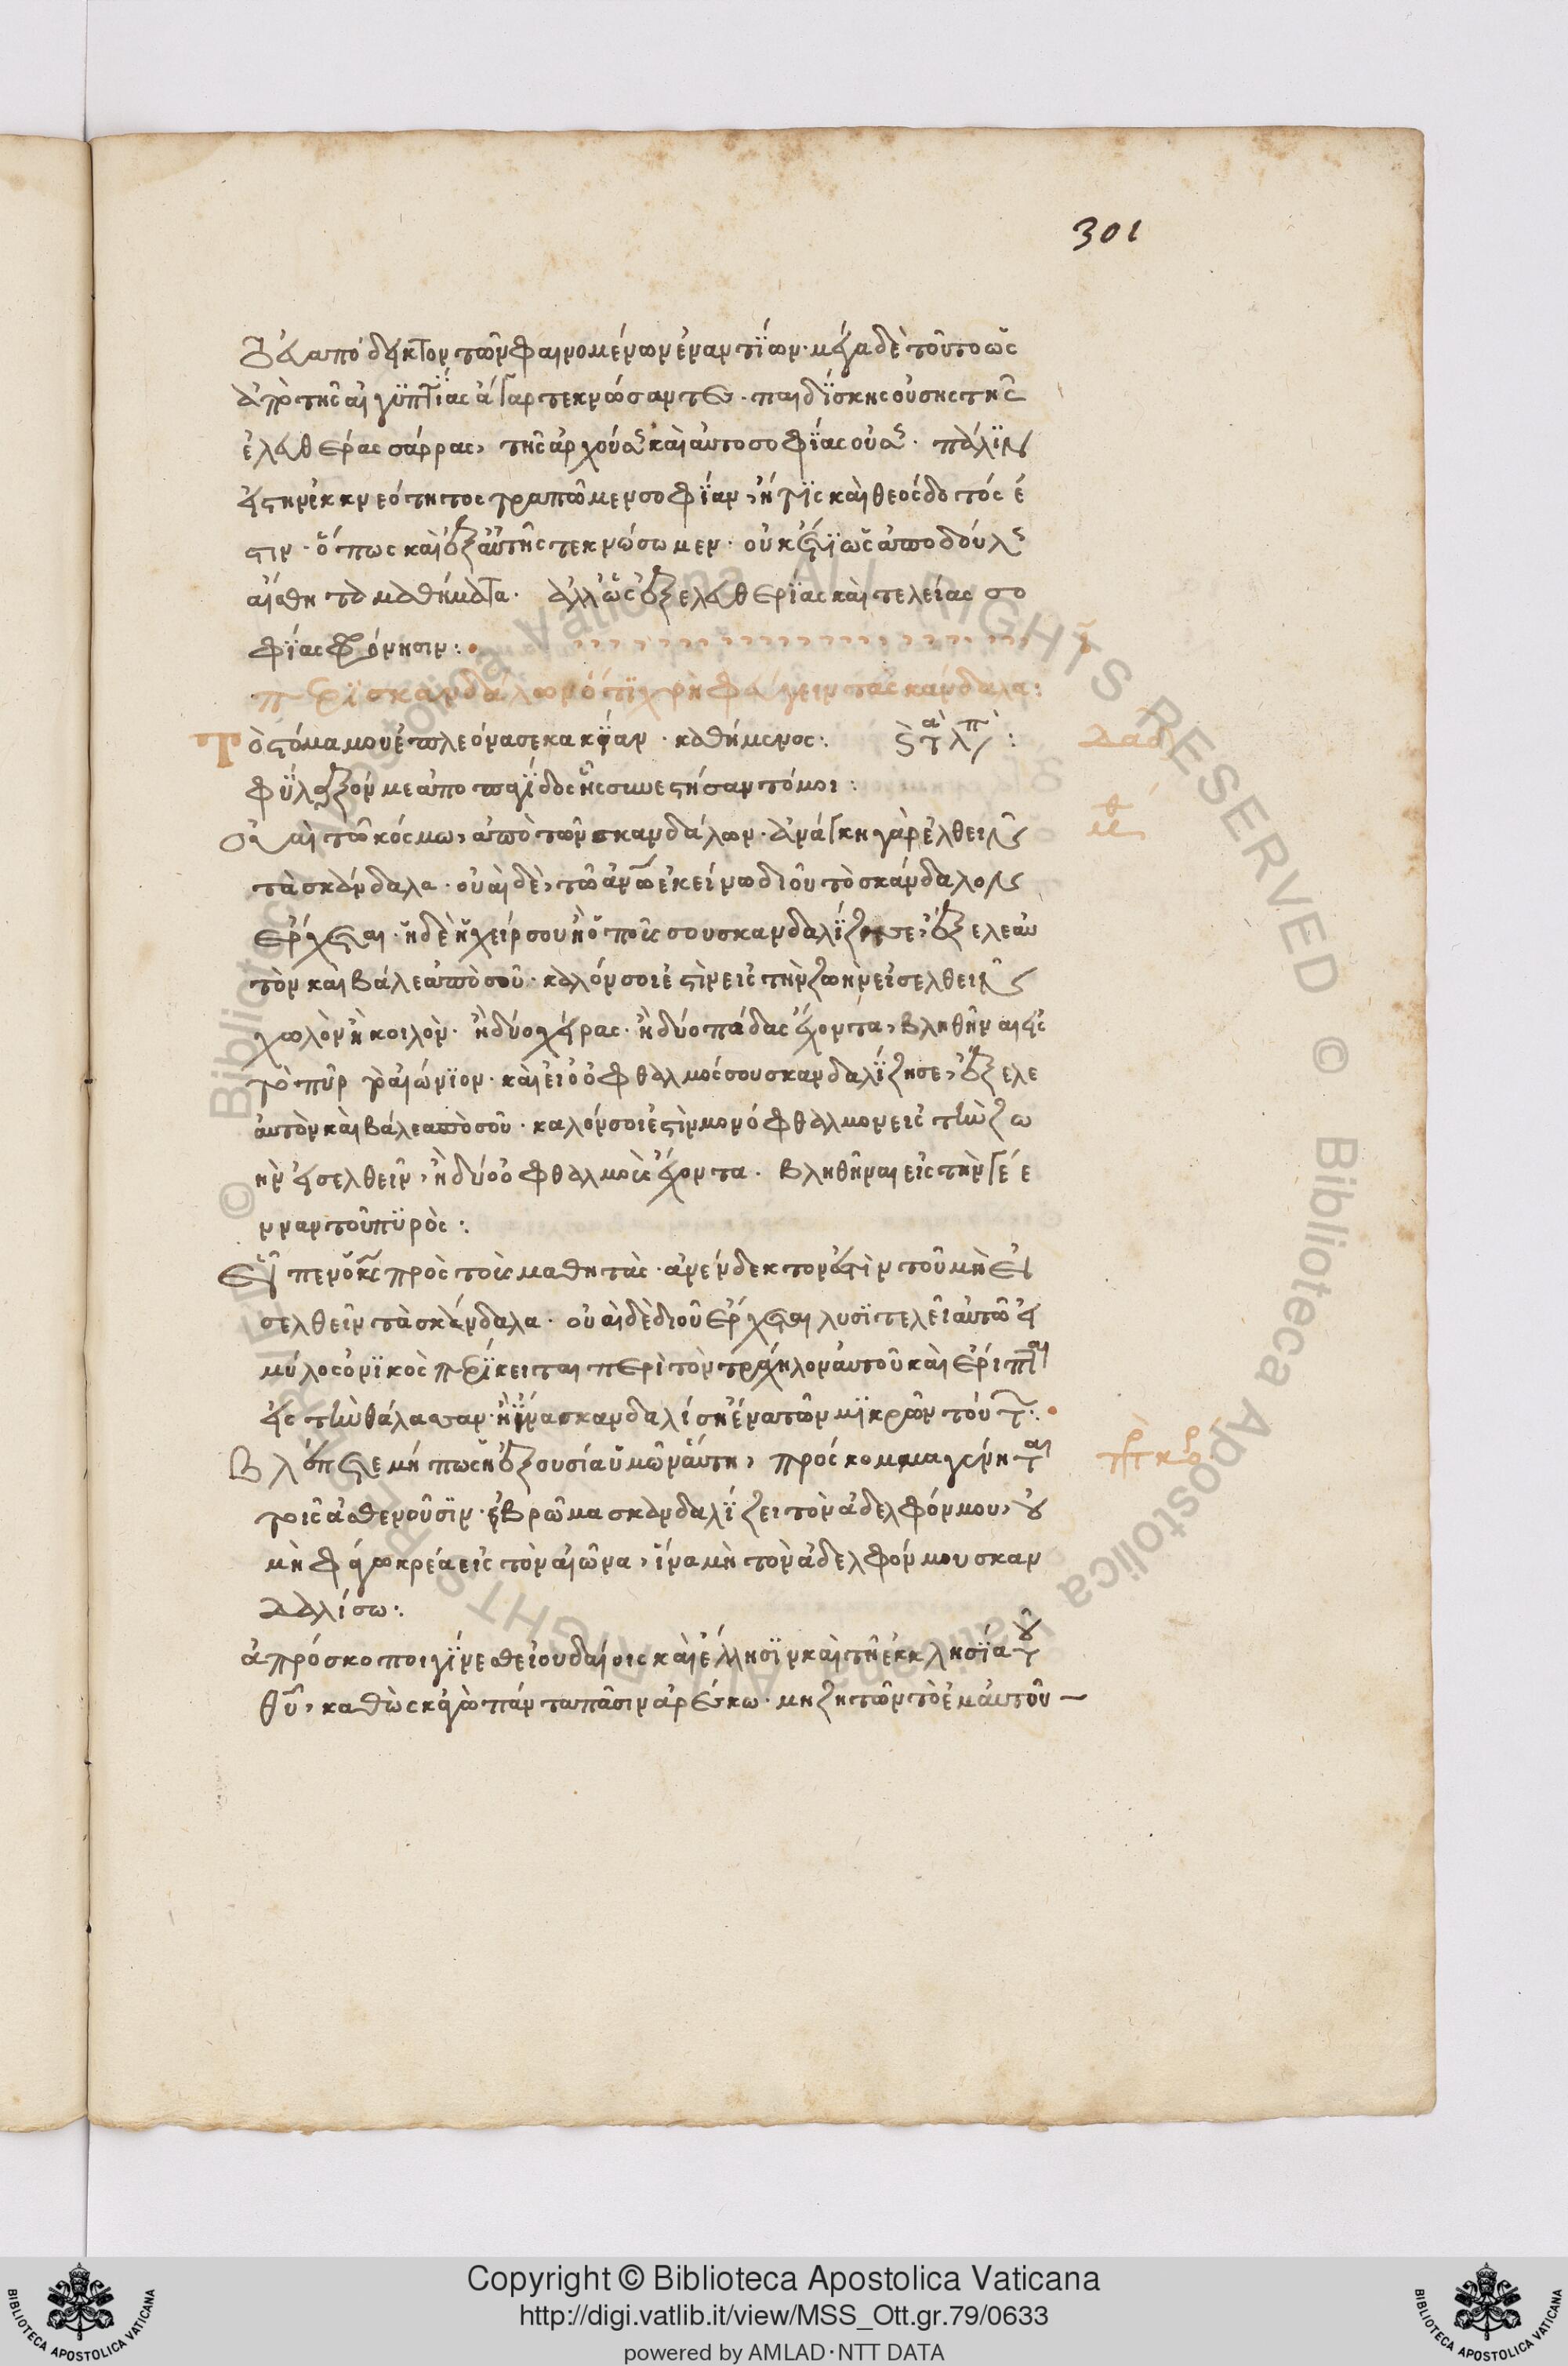 301
ἀπόδεικτον τῶν φαινομένων ἐναντΐων· μετὰ δὲ τοῦτο ὡς
ἀπὸ τῆς αἰγϋπτΐας ἄγαρ τεκνώσαντες· παιδΐσκης οὔσης τῆς
ἐλευθέρας σάρρας, τῆς ἀρχούσης καὶ αὐτοσοφΐας οὔσης· πάλϊν
εἰς τὴν ἐκ νεότητος τραπῶμεν σοφΐαν, ἥτϊς καὶ θεόσδοτός έ
στιν· ὅπως καὶ ἐξ αὐτῆς τεκνώσωμεν· οὐκέτϊ ὡς ἀπὸ δούλης
αἰσθητὰ μαθήματα· ἀλλ' ὡς ἐξ ἐλευθερΐας καὶ τελείας σο
φΐας φρόνησιν:
περὶ σκανδάλων ὅτϊ χρὴ φεύγειν τὰ σκάνδαλα:
Τὸ στόμα μου ἐπλεόνασε κακΐαν· καθήμενος:
φϋλαξόν με ἀπὸ παγΐδος ἧς συνεστήσαντό μοι:
Οὐαὶ τῷ κόσμω, ἀπὸ τῶν σκανδάλων· ἀνάγκη γὰρ ἐλθεῖν
τὰ σκάνδαλα· οὐαὶ δὲ, τῷ ἀνῳ ἐκείνω δι' οὗ τὸ σκάνδαλον
ἔρχεται· ἡ δὲ ἡ χείρ σου ἢ ὁ ποῦς σου σκανδαλΐζησε, ἔξελε αὐ
τὸν καὶ βάλε ἀπὸ σοῦ· καλόν σοι ἐστὶν εἰς τὴν ζωὴν εἰσελθεῖν
χωλὸν ἢ κοιλὸν· ἢ δύο χεῖρας· ἢ δύο πόδας ἔχοντα, βληθῆναι εἰς
τὸ πῦρ τὸ αἰώνϊον· καὶ εἰ ὁ ὀφθαλμός σου σκανδαλΐζησε, ἔξελε
αὐτὸν καὶ βάλε ἀπὸ σοῦ· καλόν σοι ἐστὶν μονόφθαλμον εἰς τὴν ζω
ὴν εἰσελθεῖν, ἢ δύο ὀφθαλμοὺς ἔχοντα· βληθῆναι εἰς τὴν γέε
νναν τοῦ πϋρὸς:
Εἶπεν ὁ κς πρὸς τοὺς μαθητὰς· ἀνένδεκτον ἐστὶν τοῦ μὴ εἰ
σελθεῖν τὰ σκάνδαλα· οὐαὶ δὲ δι' οὗ ἔρχεται λυσϊτελεῖ αὐτῷ εἰ
μύλος ὀνϊκὸς περΐκειται περὶ τὸν τράχηλον αὐτοῦ καὶ ἔριπται
εἰς τὴν θάλασσαν· ἢ ἵνα σκανδαλίση ἕνα τῶν μϊκρῶν τούτ:
Βλέπετε μή πως ἡ ἐξουσία ὑμῶν αὕτη, πρόσκομμα γένηται
τοῖς ἀσθενοῦσϊν· εἰ βρῶμα σκανδαλΐζει τὸν ἀδελφόν μου, οὐ
μὴ φάγω κρέα εἰς τὸν αἰῶνα, ἵνα μὴ τὸν ἀδελφόν μου σκαν
δαλίσω:
ἀπρόσκοποι γΐνεσθε ἰουδαίοις καὶ ἕλλησϊν καὶ τῆ ἐκκλησΐα τοῦ
θῦ, καθὼς κἀγὼ πάντα πᾶσιν ἀρέσκω· μὴ ζητῶν τὸ ἐμαὐτοῦ
© Biblioteca Apostolica Vaticana ALL RIGHTS RESERVED
Copyright © Biblioteca Apostolica Vaticana
http://digi.vatlib.it/view/MSS_Ott.gr.79/0633
powered by AMLAD·NTT DATA
BIBLIOTECA APOSTOLICA VATICANA
BIBLIOTECA APOSTOLICA VATICANA